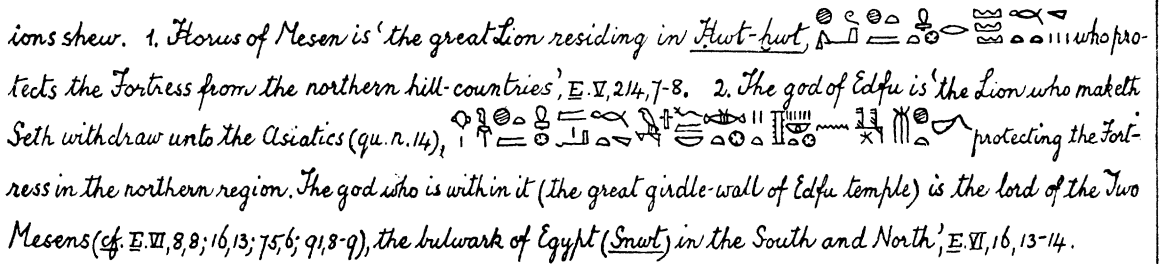 ions shew. 1. Horus of Mesen is 'the great Lion residing in Ḥwt-ḥwt, who pro-
tects the Fortress from the northern hill-countries', E.V, 214, 7-8. 2. The god of Edfu is 'the Lion who maketh
Seth withdraw unto the Asiatics (qu. n. 14), protecting the Fort-
ress in the northern region. The god who is within it (the great girdle-wall of Edfu temple) is the lord of the Two
Mesens (cf. E.VI, 8,8; 16,13; 75,6; 91,8-9), the bulwark of Egypt (Snwt) in the South and North', E.VI, 16, 13-14.